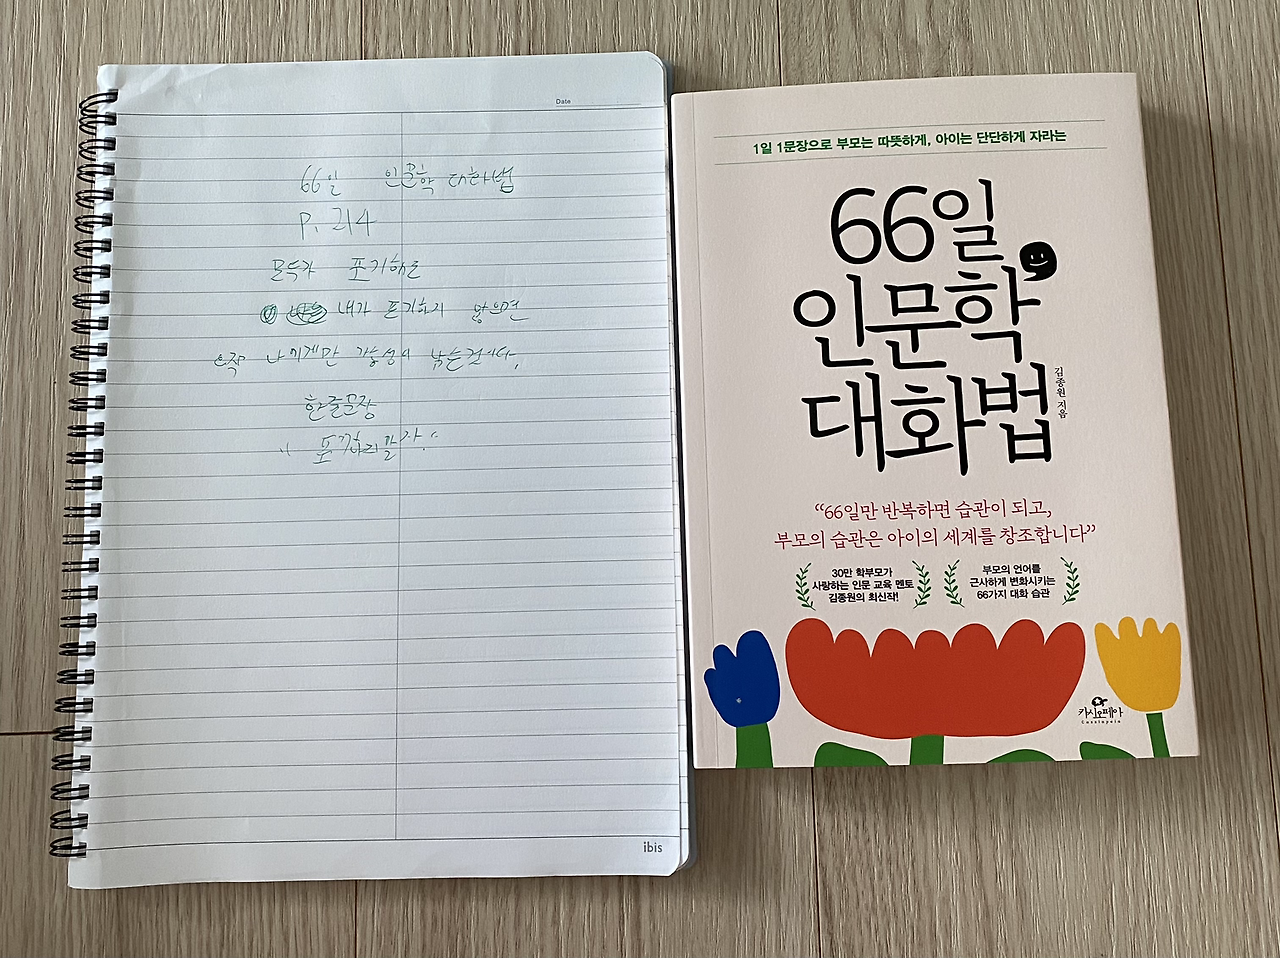 Date
66일 인문학 대화법
P. 214
모두가 포기해도
내가 포기하지 않으면
오직 나에게만 가능성이 남는것이다.
한글문장
ibis
1일 1문장으로 부모는 따뜻하게, 아이는 단단하게 자라는
66일
인문학
대화법
김종원 지음
“66일만 반복하면 습관이 되고,
부모의 습관은 아이의 세계를 창조합니다”
30만 학부모가
사랑하는 인문 교육 멘토
김종원의 최신작!
부모의 언어를
근사하게 변화시키는
66가지 대화 습관
카시오페아
Cassiopeia